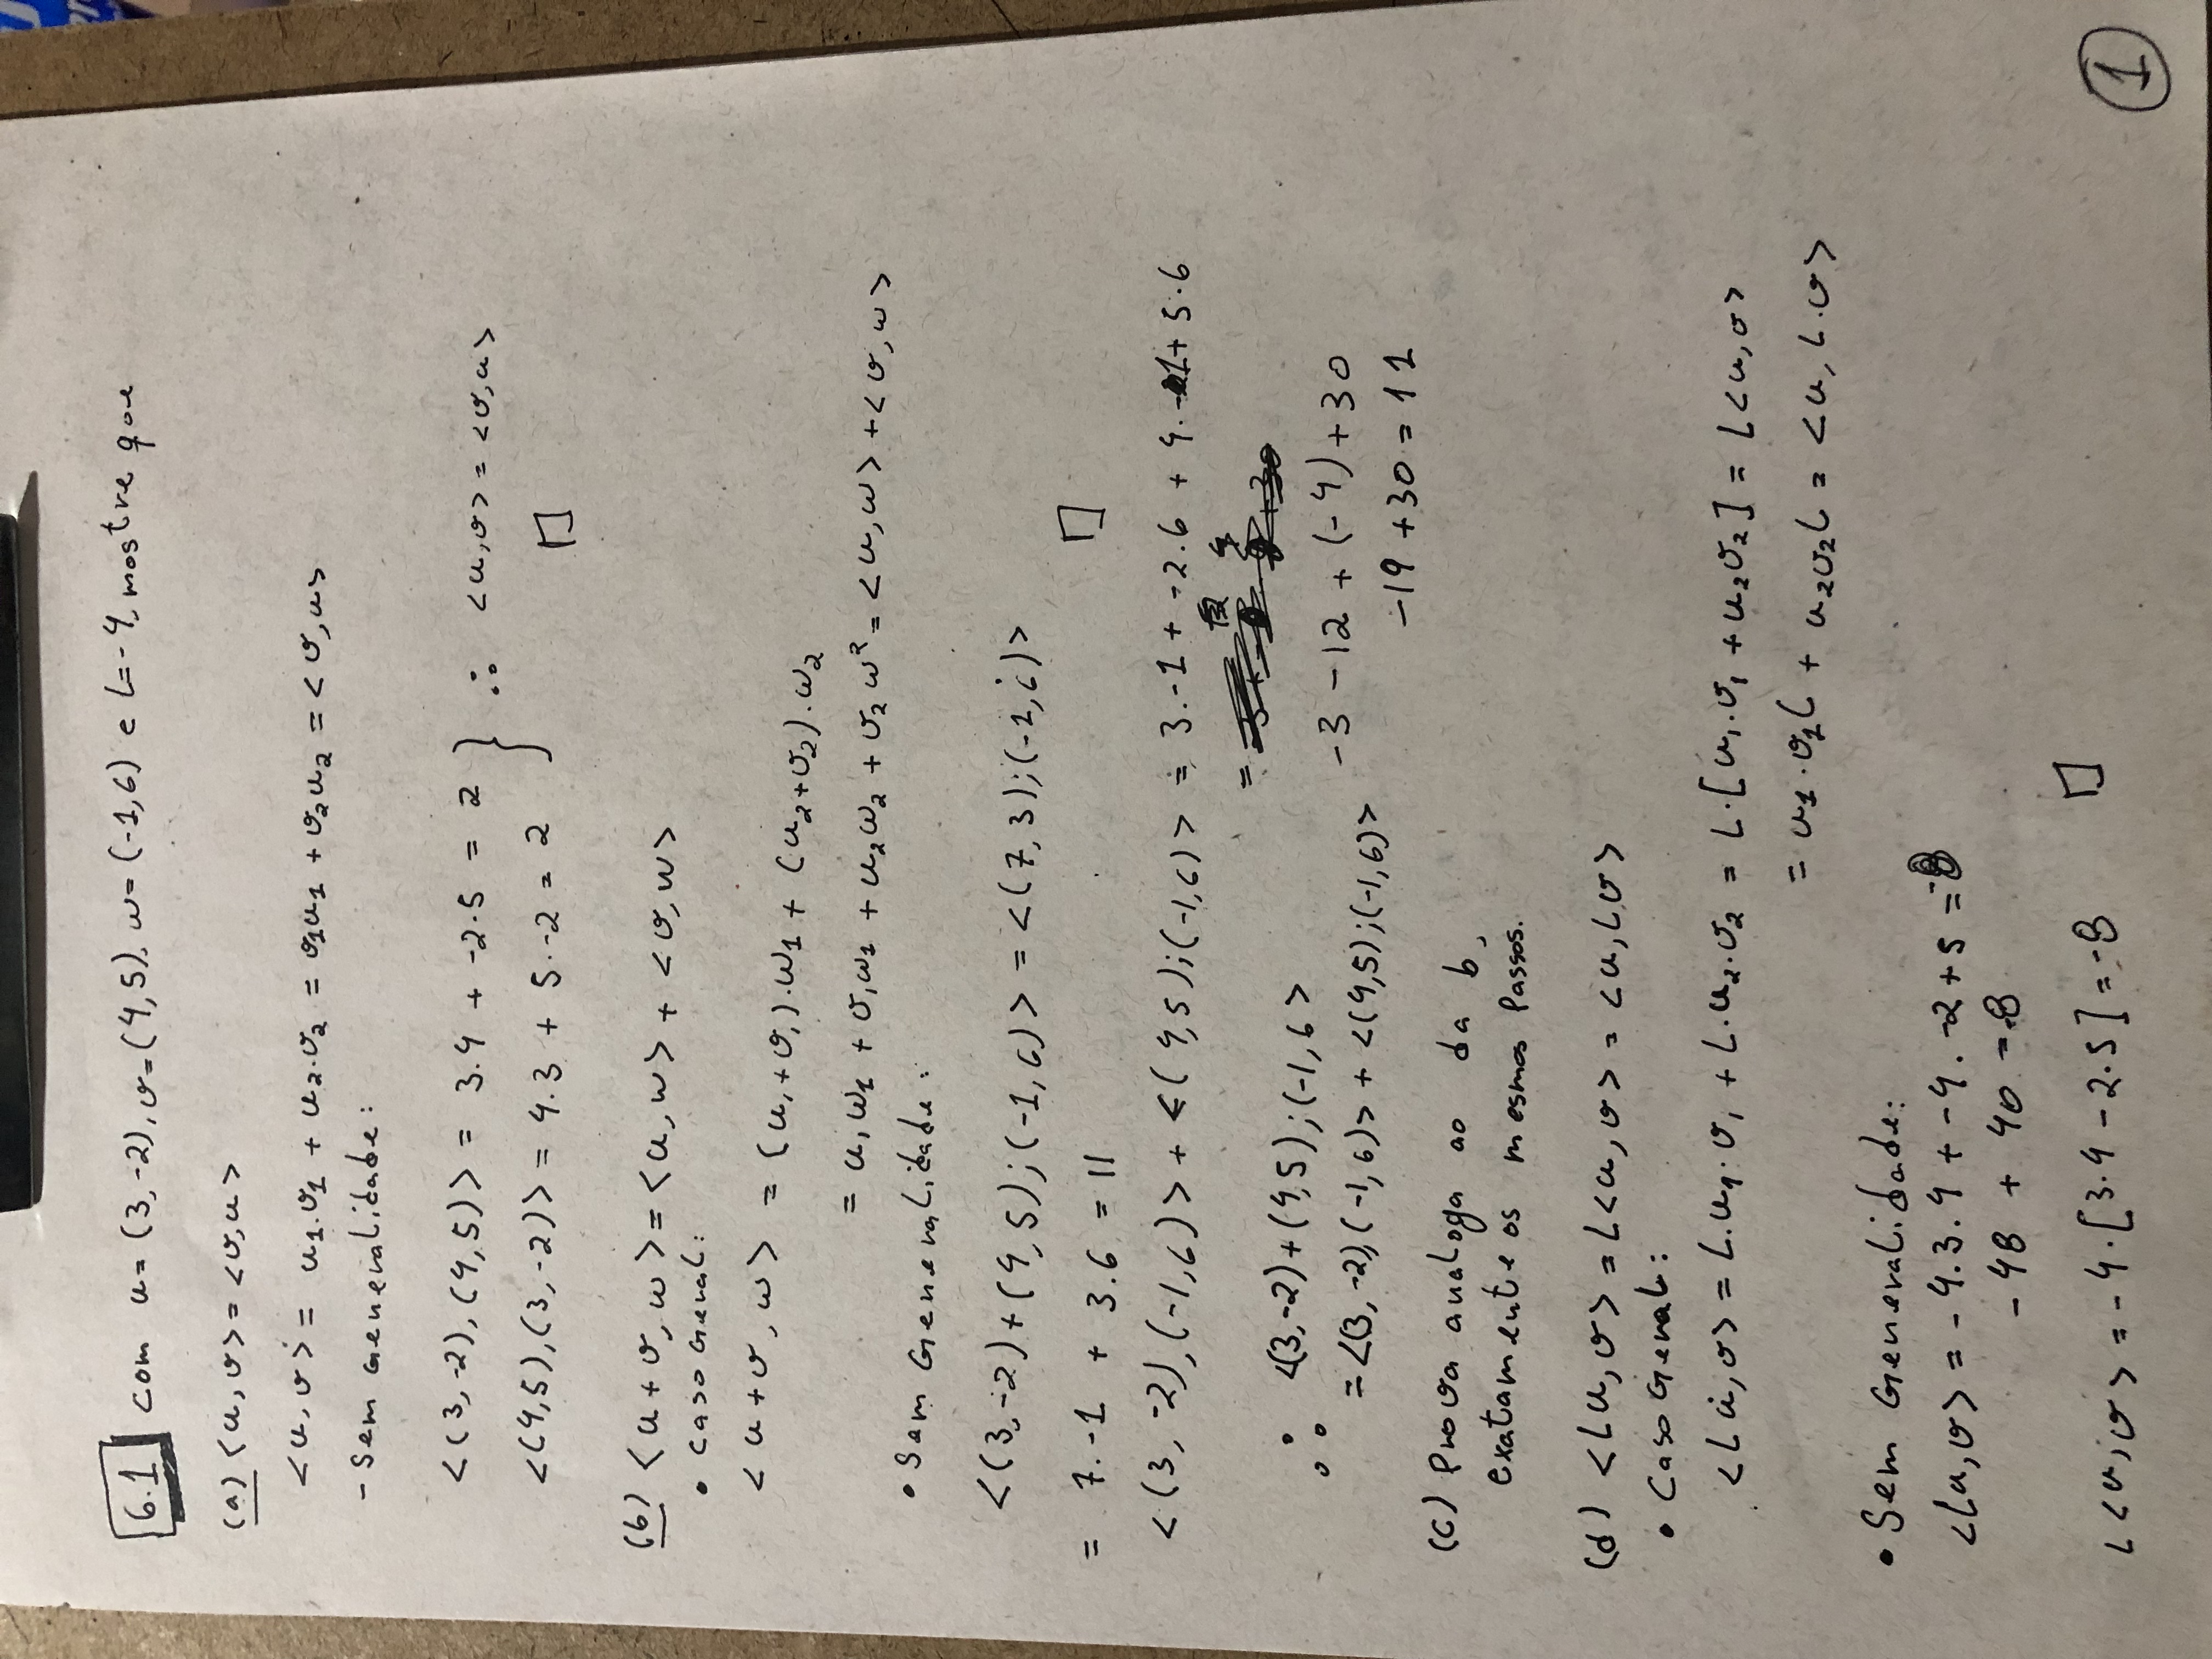 6.1 com u= (3,-2), v=(4,5), w= (-1,6) e L=-4, mostre que
(a) <u, v> = <v,u>
<u, v> = u1.v1 + u2.v2 = v1u1 + v2u2 = <v,u>
- Sem Generalidade:
<(3,-2),(4,5)> = 3.4 + -2.5 = 2 } ∴ <u,v> = <v,u>
<(4,5),(3,-2)> = 4.3 + 5.-2 = 2
(b) <u+v, w> = <u,w> + <v,w>
• Caso Geral:
<u+v, w> = (u1+v1).w1 + (u2+v2).w2
= u1w1 + v1w1 + u2w2 + v2w² = <u,w> + <v,w>
• Sem Generalidade:
<(3,-2)+(4,5);(-1,6)> = <(7,3);(-1,6)>
= 7.-1 + 3.6 = 11
<(3,-2),(-1,6)> + <(4,5);(-1,6)> = 3.-1 + -2.6 + 4.-1+ 5.6
=
∴ <(3,-2)+(4,5);(-1,6>
-3 -12 + (-4)+30
= <(3,-2),(-1,6)> + <(4,5);(-1,6)>
-19 +30 = 11
(c) Prova analoga ao da b,
exatamente os mesmos Passos.
(d) <Lu, v> = L<u, v> = <u,Lv>
• Caso Geral:
<Lu,v> = L.u1.v1 + L.u2.v2 = L.[u1.v1 + u2v2] = L<u,v>
= u1.v1L + u2v2L = <u, L.v>
• Sem Generalidade:
<Lu,v> = -4.3.4 + -4.-2+5 =-8
-48 + 40 =-8
L<u;v> = -4.[3.4 - 2.5] = -8
1